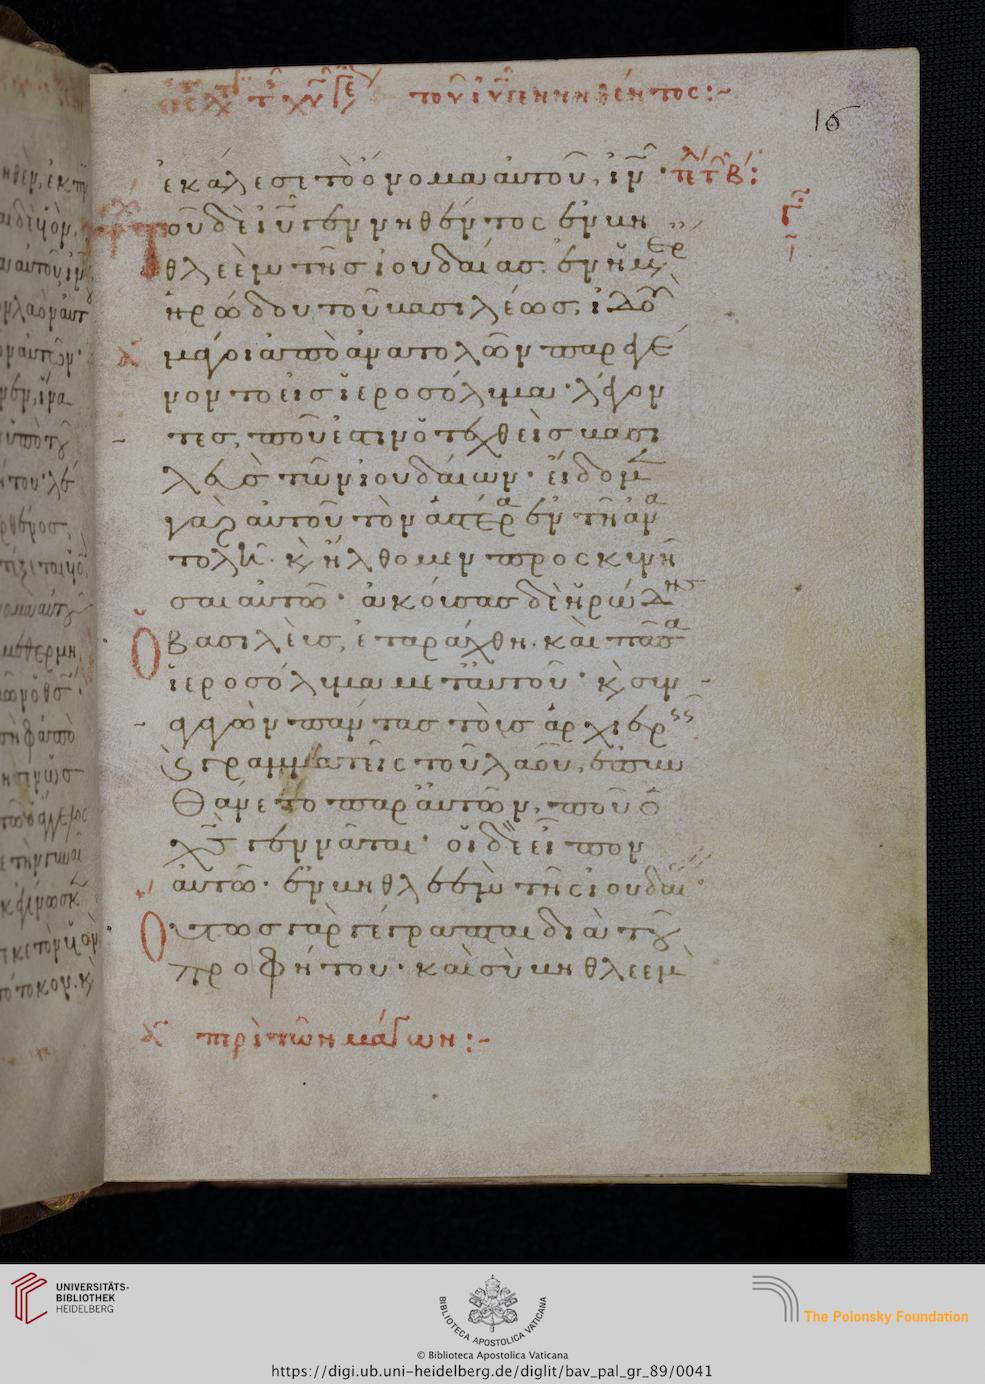 τοῦ ἰῦ γεννηθέντος :~
16
ἐκάλεσε τὸ ὄνομα αὐτοῦ, ἰν̅ ·
τοῦ δὲ ἰῦ γεννηθέντος ἐν βη
θλεὲμ τῆς ἰουδαίας. ἐν ἡμερ
ἡρώδου τοῦ βασιλέως, ἰδοὺ
μάγοι ἀπὸ ἀνατολῶν παρεγέ
νοντο εἰς ἱεροσόλυμα · λέγον
τες, ποῦ ἐστιν ὁ τεχθεὶς βασι
λεὺς τῶν ἰουδαίων · εἴδομ
γὰρ αὐτοῦ τὸν ἀστέρα ἐν τῆ ἀνα
τολῆ · κ̀ ἤλθομεν προσκυνῆ
σαι αὐτῶ · ἀκούσας δὲ ἡρώδης
ὁ βασιλεὺς, ἐταράχθη · καὶ πᾶσα
ἱεροσόλυμα μετ αὐτοῦ · κ̀ συν
αγαγὼν πάντας τοὺς ἀρχιερ
κ̀ γραμματεῖς τοῦ λαοῦ, ἐπυν
θάνετο παρ αὐτῶν, ποῦ ὁ
χ̅ς γεννᾶται · οἱ δὲ εἶπον
αὐτῶ · ἐν βηθλεὲμ τῆς ἰουδαί
Οὕτως γὰρ γέγραπται διὰ τοῦ
προφήτου · καὶ σὺ βηθλεὲμ
περὶ τῶν μάγων :~
UNIVERSITÄTS-
BIBLIOTHEK
HEIDELBERG
BIBLIOTECA APOSTOLICA VATICANA
The Polonsky Foundation
© Biblioteca Apostolica Vaticana
https://digi.ub.uni-heidelberg.de/diglit/bav_pal_gr_89/0041